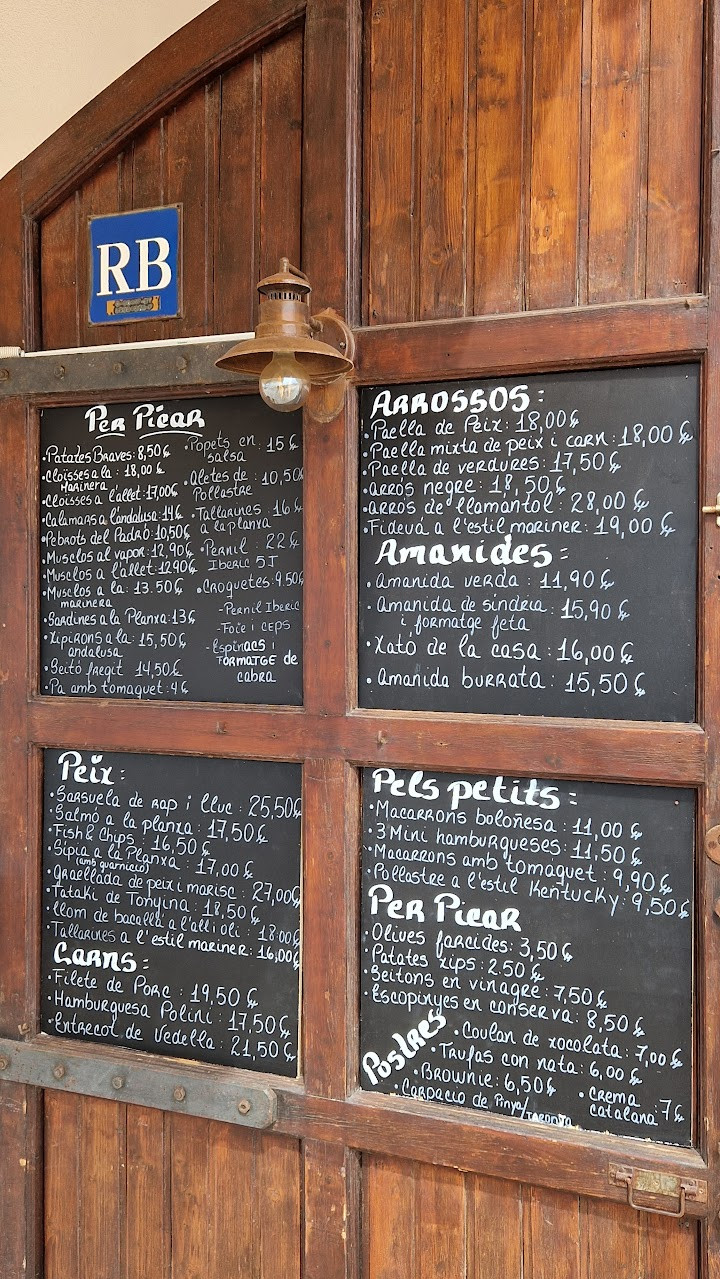 RB
Per Picar
• Patates Braves: 8,50€
• Cloïsses a la : 18,00€
marinera
• Cloisses a l'allet: 17,00€
• Calamars a l'andalusa: 14€
• Pebrots del Padró: 10,50€
• Musclos al vapor: 12,90€
• Musclos a l'allet: 12,90€
• Musclos a la: 13.50€
marinera
• Sardines a la Planxa: 13€
• Xipirons a la: 15,50€
andalusa
• Seitó fregit 14,50€
• Pa amb tomaquet: 4€
• Popets en : 15€
salsa
• Aletes de : 10,50€
Pollastre
• Tallarines : 16€
a la planxa
• Pernil : 22€
Iberic 5J
• Croquetes: 9.50€
- Pernil Iberic
- Foie i ceps
- Espinacs i
formatge de
cabra
Arrossos:
• Paella de Peix: 18,00€
• Paella mixta de peix i carn: 18,00€
• Paella de verdures: 17,50€
• arròs negre: 18,50€
• arròs de llamantol: 28,00€
• Fideuá a l'estil mariner: 19,00€
Amanides:
• Amanida verda : 11,90€
• Amanida de sindria : 15,90€
i formatge feta
• Xató de la casa : 16,00€
• Amanida burrata : 15,50€
Peix:
• Sarsuela de rap i lluc: 25,50€
• Salmó a la planxa: 17,50€
• Fish & Chips : 16,50€
• Sípia a la Planxa : 17,00€
(amb guarnició)
• graellada de peix i marisc : 27,00€
• Tataki de Tonyina : 18,50€
• llom de bacallà a l'all i oli : 18.00€
• Tallarines a l'estil mariner: 16,00€
Carns:
• Filete de Porc : 19,50€
• Hamburguesa Polini: 17,50€
• Entrecot de Vedella: 21,50€
Pels petits:
• Macarrons boloñesa : 11,00€
• 3 Mini hamburgueses: 11,50€
• Macarrons amb tomaquet : 9,90€
• Pollastre a l'estil Kentucky: 9,50€
Per Picar
• Olives farcides: 3,50€
• Patates xips: 2.50€
• Seitons en vinagre: 7,50€
• Escopinyes en conserva : 8,50€
Postres
• Coulan de xocolata: 7,00€
• Trufas con nata: 6,00€
• Brownie: 6,50€
• Carpacio de Pinya/
• crema
catalana : 7€